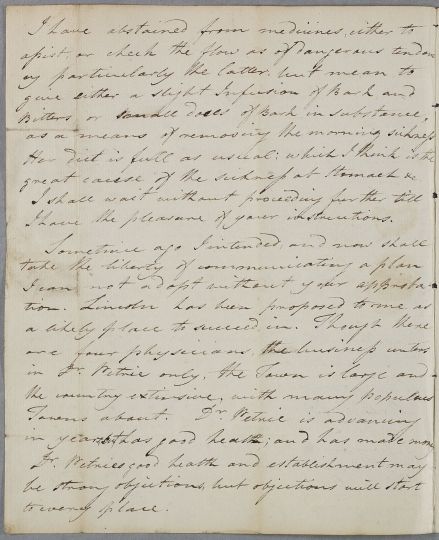 I have abstained from medicines, either to
assist, or check the flow as of dangerous tenden
cy particularly the latter, but I mean to
give either a slight Infusion of Bark and
Bitters or small doses of Bark in substance,
as a means of removing the morning sickness
Her diet is full as usual; which I think is the
great cause of the sickness at stomach &c
I shall wait without proceeding further till
I have the pleasure of your instructions.
Sometime ago I intended, and now shall
take the liberty of communicating a plan
I can not adopt without your approba-
tion. Lincoln has been proposed to me as
a likely place to succeed in. Though there
are four physicians, the business centers
in Dr. Petrie only, the Town is large and
the country extensive, with many populous
Towns about. Dr. Petrie is advancing
in years but has good health; and has made money
Dr. Petries good health and establishment may
be strong objections, but objections will start
to every place.